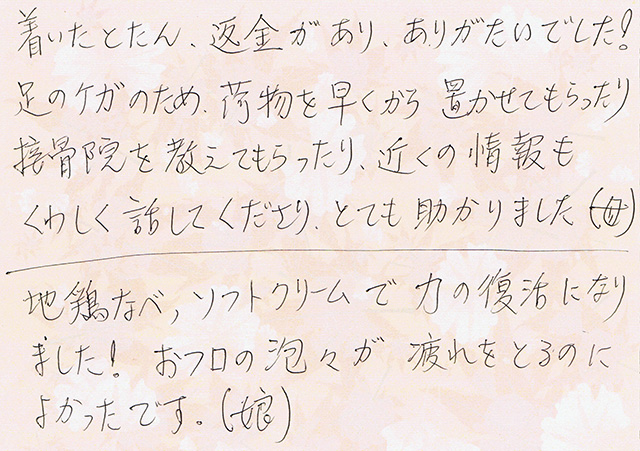 着いたとたん、返金があり、ありがたいでした!
足のケガのため、荷物を早くから置かせてもらったり
接骨院を教えてもらったり、近くの情報も
くわしく話してくださり、とても助かりました(母)
地鶏なべ、ソフトクリームで力の復活になり
ました! おフロの泡々が疲れをとるのに
よかったです。(娘)